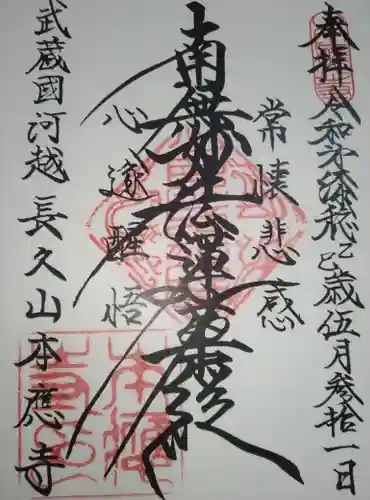 奉拝
令和才漆穐乙巳歳伍月参拾一日
常懐悲感
南無妙法蓮華経
心遂醒悟
武蔵國河越 長久山本應寺